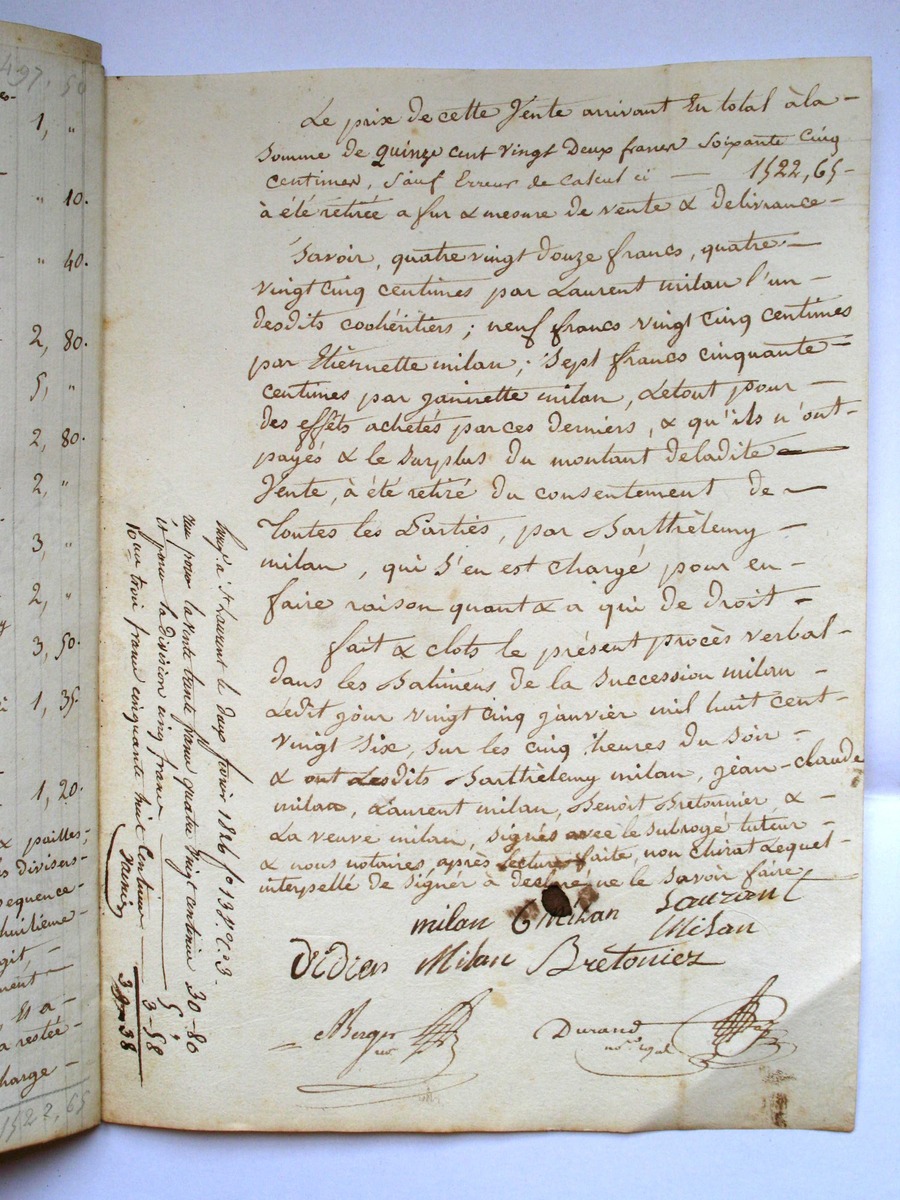 Le prix de cette Vente arrivant En total à la
somme de quinze cent vingt Deux francs Soixante Cinq
centimes, Sauf Erreur de Calcul ci — 1522,65
à été retirée a fur & mesure de vente & delivrance
Savoir, quatre vingt douze francs, quatre
vingt cinq centimes par Laurent milan l'un
desdits cohéritiers ; neuf francs vingt cinq centimes
par Etiennette milan ; Sept francs cinquante
centimes par jannette milan, Le tout pour
des effèts achetés par ces derniers, & qu'ils n'ont
payés & le Surplus du montant de ladite
Vente, à été retiré du consentement de
toutes les Partiès, par Barthèlemy
milan, qui S'en est chargé pour en
faire raison quant & a qui de droit
fait & clots le présent procès verbal
dans les Batimens de la Succession milan
Ledit jour vingt cinq janvier mil huit cent
vingt Six, sur les cinq heures du Soir
& ont Lesdits Barthèlemy milan, jean-claude
milan, Laurent milan, Benoit Bretonnier, &
La veuve milan, signés avec le subrogé tuteur
& nous notaires, après Lecture faite, non Chirat Lequel
interpellé de Signér à declaré ne le Savoir fáire
milan Milan Lauzant
Didier Milan Bretoniez Milan
Berger
Durand
no.re royal
St Laurent le deux fevrier 1826 fo 13
pour la vente trente francs quatre vingt centimes 30-80
et pour la division cinq francs 5,"
trois francs cinquante huit centimes 3-58
38
497, 50
1, "
" 10.
" 40.
2, 80.
5, "
2, 80.
2, "
3, "
2, "
3, 50.
1, 35
1, 20.
pailles,
divisers
sequence
huitieme
git,
ment
Es a
restée
harge
1522, 65